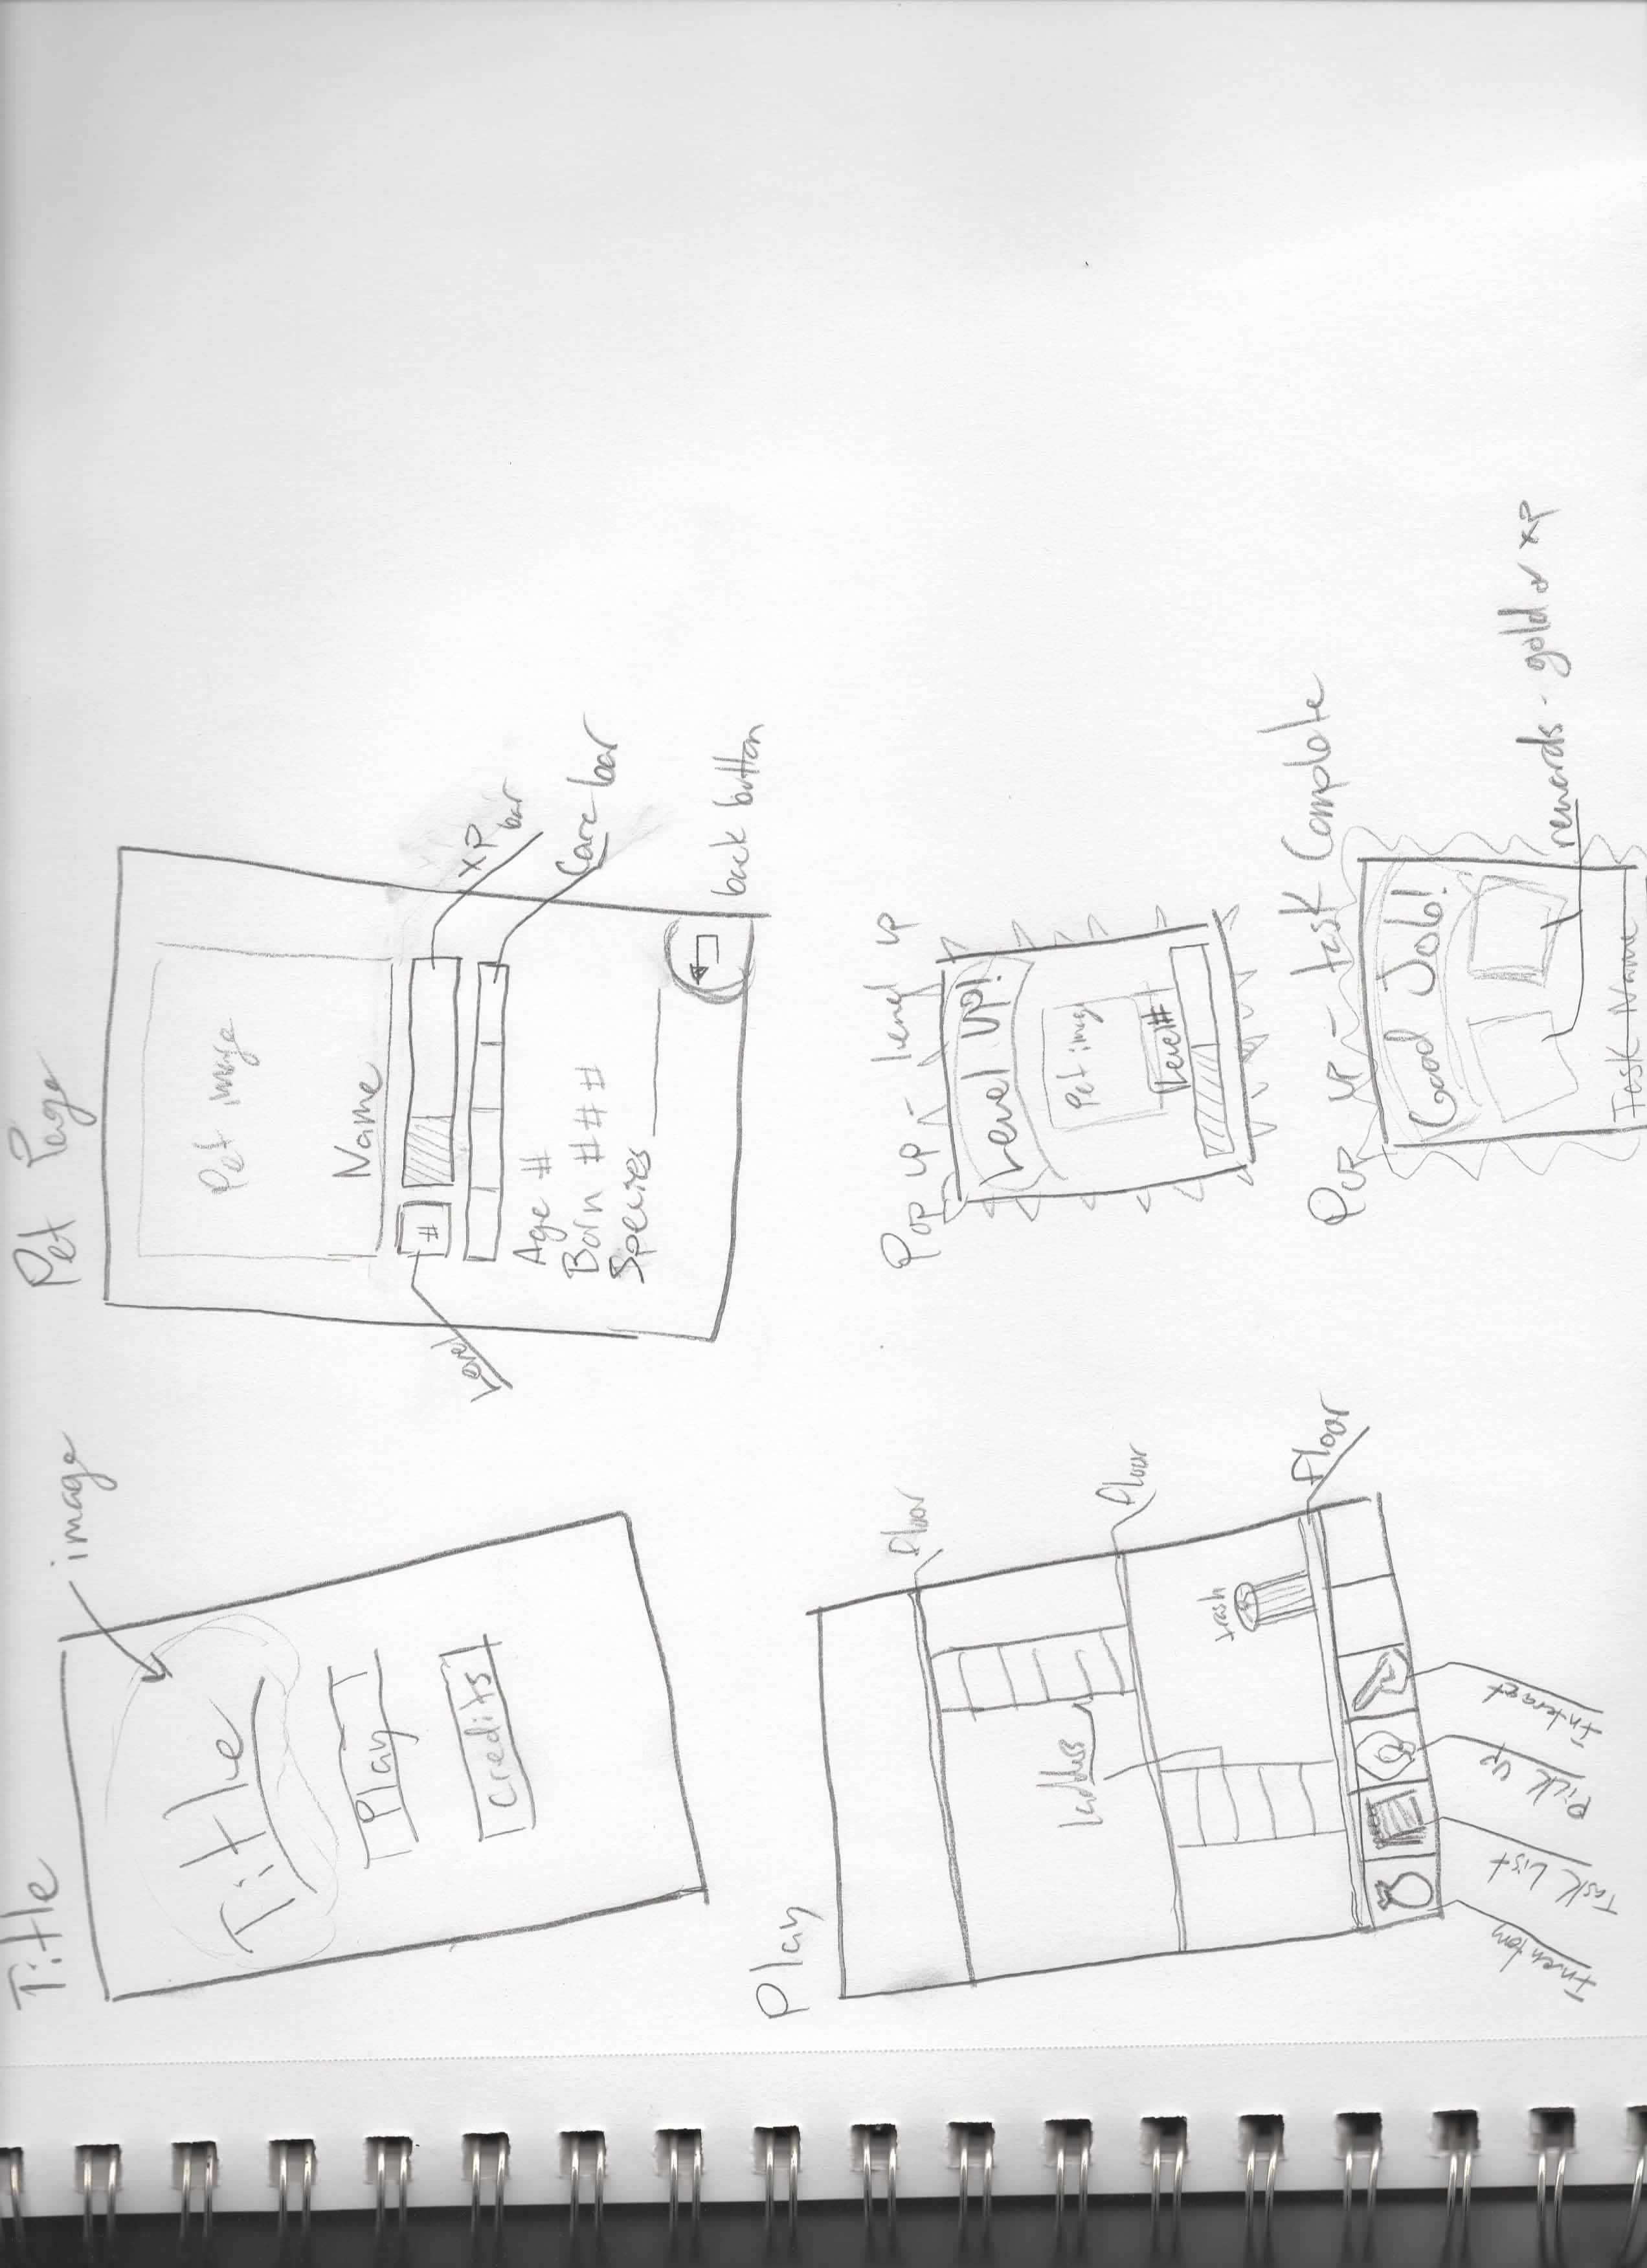 Title
image
Title
Play
Credits
Pet Page
Pet image
Name
#
XP bar
Care bar
Level
Age #
Born # # #
Species
back button
Play
floor
floor
floor
ladders
trash
Inventory
Task List
Pick up
Interact
Pop up - level up
Level up!
Pet image
Level #
Pop up - task Complete
Good Job!
rewards - gold or XP
Task Name